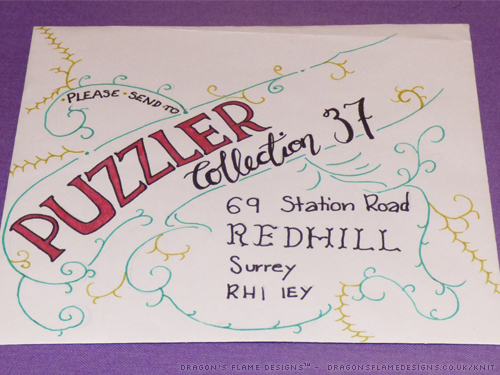 ·PLEASE·SEND·TO·
PUZZLER
Collection 37
69 Station Road
REDHILL
Surrey
RH1 1EY
DRAGON'S FLAME DESIGNS™ - DRAGONSFLAMEDESIGNS.CO.UK/KNIT